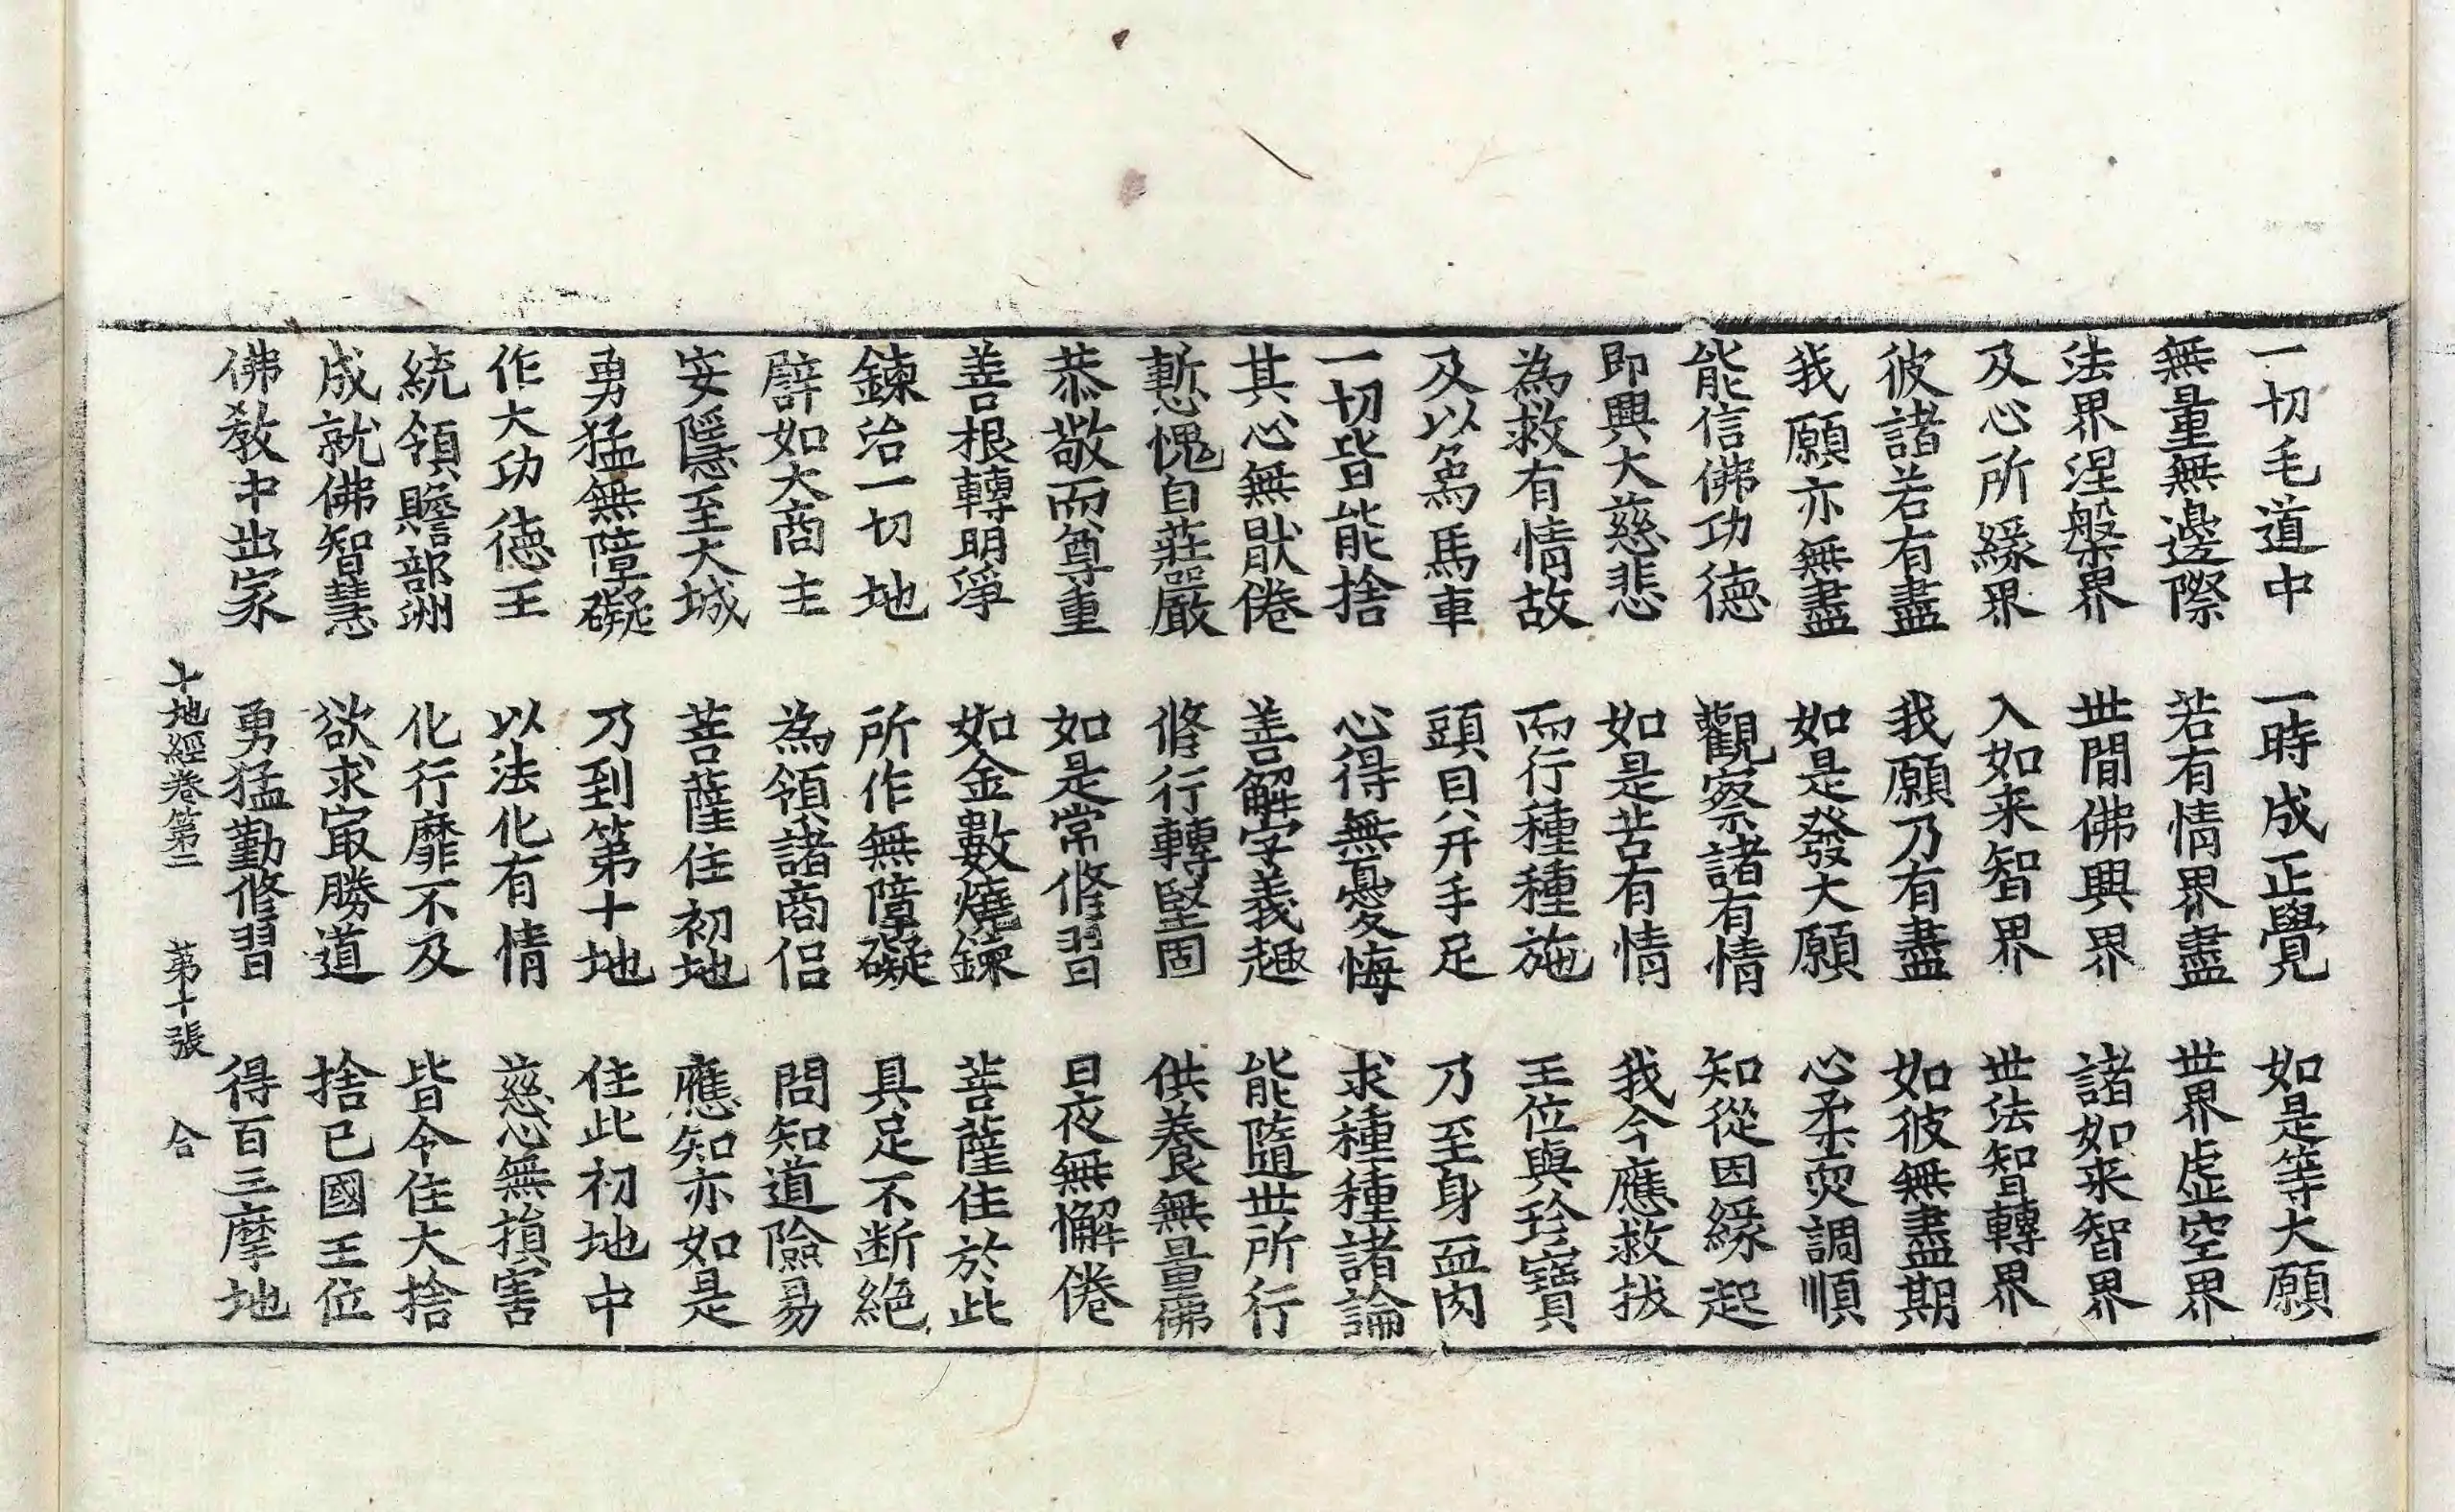 一切毛道中　一時成正覺　如是等大願
無量無邊際　若有情界盡　世界虛空界
法界涅槃界　世間佛興界　諸如来智界
及心所緣界　入如来智界　世法智轉界
彼諸若有盡　我願乃有盡　如彼無盡期
我願亦無盡　如是發大願　心柔耎調順
能信佛功德　觀察諸有情　知從因緣起
即興大慈悲　如是苦有情　我今應救拔
為救有情故　而行種種施　王位與珍寶
及以為馬車　頭目幷手足　乃至身血肉
一切皆能捨　心得無憂悔　求種種諸論
其心無猒倦　善解字義趣　能隨世所行
慙愧自莊嚴　修行轉堅固　供養無量佛
恭敬而尊重　如是常修習　日夜無懈倦
善根轉明淨　如金數燒鍊　菩薩住於此
鍊治一切地　所作無障礙　具足不断絶
譬如大商主　為領諸商侶　問知道險易
安隱至大城　菩薩住初地　應知亦如是
勇猛無障礙　乃到第十地　住此初地中
作大功德王　以法化有情　慈心無損害
統領贍部洲　化行靡不及　皆令住大捨
成就佛智慧　欲求㝡勝道　捨已國王位
佛教中出家　勇猛勤修習　得百三摩地
十地經卷第二　第十張　合